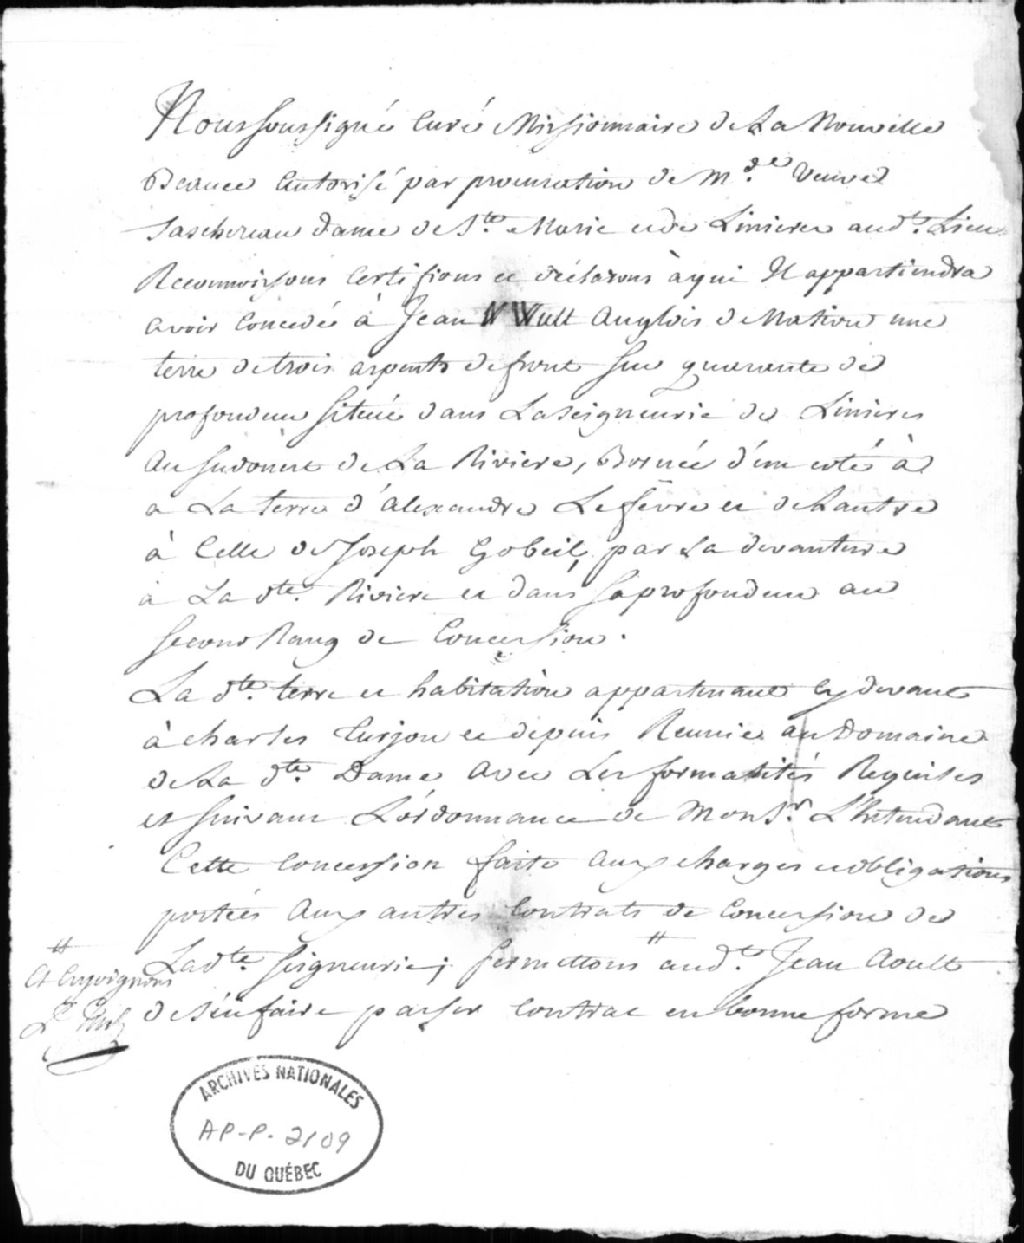 Nous soussigné Curé Missionnaire de La Nouvelle
Beauce Autorisé par procuration de M.de Veuve
Taschereau Dame de Ste Marie et de Liniere audt. Lieu
Reconnoissons Certifions et déclarons à qui Il appartiendra
avoir Concedé à Jean Wult Anglois de Nation une
terre de trois arpents de front sur quarente de
profondeur située dans La seigneurie de Linieres
Au sudouest de La Riviere, Bornée d'un coté à
a La terre d'alexandre Lefevre et de Lautre
à Celle de Joseph Gobeil, par La devanture
à La dte. Riviere et dans sa profondeur au
second Rang de Concession.
La dte. terre et habitation appartenant Cy devant
à charles Turjon et depuis Reunie au Domaine
de La dte. Dame avec Les formalités Requises
et suivant L'ordonnance de Monsr. L'Intendant
Cette Concession faite aux charges et obligations
portées aux autres Contrats de Concession de
Ladte. Seigneurie; permettons # audt. Jean Aoult
de s'en faire passer Contrat en bonne forme
#
Et Enjoignons
ARCHIVES NATIONALES
AP-P-2109
DU QUÉBEC